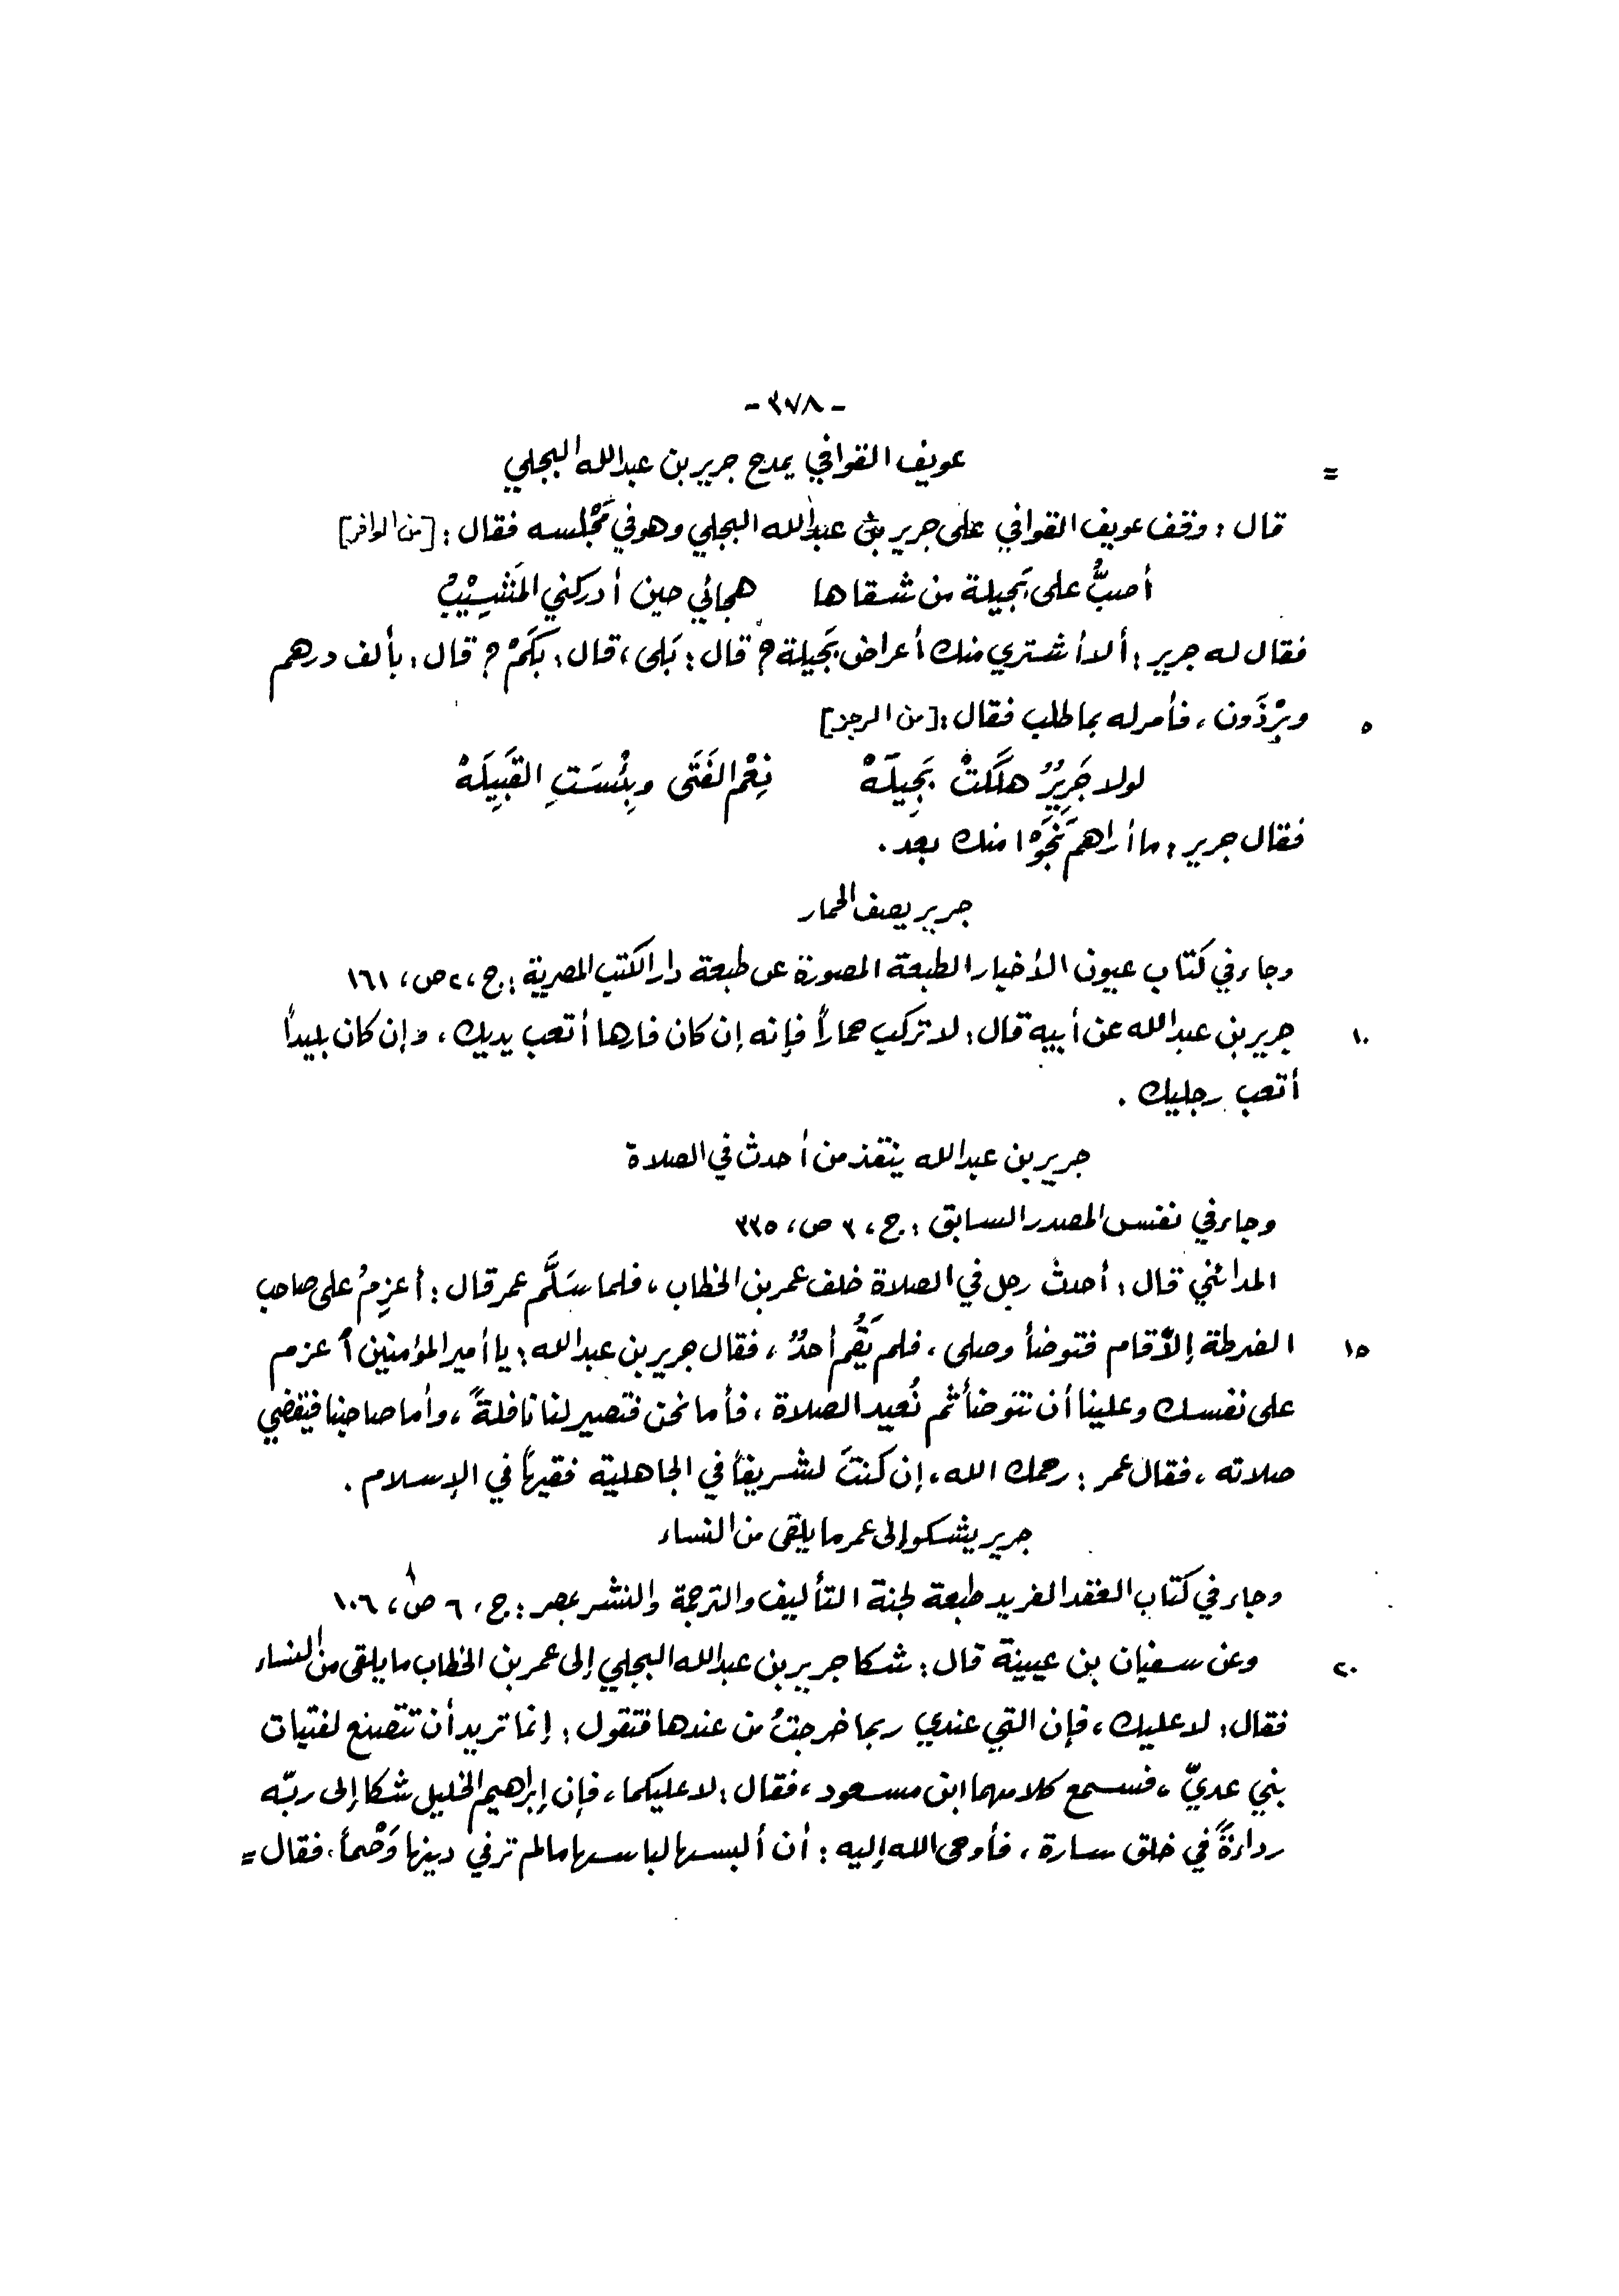 - ٣٧٨ -
= عويف القوافي يمدح جرير بن عبدالله البجلي
قال : وقف عويف القوافي على جرير بن عبدالله البجلي وهو في مَجْلسه فقال : [من الوافر]
أصبُّ على بَجيلة من شقاها هجائي حين أدركني المَشِيْبُ
فقال له جرير : ألا أشتري منك أعراض بَجيلة ؟ قال : بَلى ، قال : بكَمْ ؟ قال : بألف درهم
٥ وبِرْذَون ، فأمر له بما طلب فقال : [من الرجز]
لولا جَرِيرٌ هلَكَتْ بَجِيلَهْ نِعْمَ الفَتَى وبِئْسَتِ القَبِيلَهْ
فقال جرير : ما أراهم نَجَوْا منك بعد .
جرير يصف الحمار
وجاء في كتاب عيون الأخبار الطبعة المصورة عن طبعة دار الكتب المصرية : ج ، ٢ ص ، ١٦١
١٠ جرير بن عبدالله عن أبيه قال : لا تركب حماراً فإنه إن كان فارها أتعب يديك ، وإن كان بليداً
أتعب رجليك .
جرير بن عبدالله ينقذ من أحدث في الصلاة
وجاء في نفس المصدر السابق : ج ، ٣ ص ، ٣٣٥
المدائني قال : أحدث رجل في الصلاة خلف عمر بن الخطاب ، فلما سَلَّم عمر قال : أعزِمُ على صاحب
١٥ الضرطة إلّا قام فتوضأ وصلى ، فلم يَقُم أحدٌ ، فقال جرير بن عبدالله : يا أمير المؤمنين أعزم
على نفسك وعلينا أن نتوضأ ثم نُعيد الصلاة ، فأما نحن فتصير لنا نافلةً ، وأما صاحبنا فيقضي
صلاته ، فقال عمر : رحمك الله ، إن كنتَ لشريفاً في الجاهلية فقيهاً في الإسلام .
جرير يشكو إلى عمر ما يلقى من النساء
وجاء في كتاب العقد الفريد طبعة لجنة التأليف والترجمة والنشر بمصر : ج ، ٦ ص ، ١٠٦
٢٠ وعن سفيان بن عيينة قال : شكا جرير بن عبدالله البجلي إلى عمر بن الخطاب ما يلقى من النساء
فقال : لا عليك ، فإن التي عندي ربما خرجتُ من عندها فتقول : إنما تريد أن تتصنع لفتيات
بني عديّ ، فسمع كلامهما ابن مسعود ، فقال : لا عليكما ، فإن إبراهيم الخليل شكا إلى ربّه
رداءةً في خلق سارة ، فأوحى الله إليه : أن ألبسها لباسها ما لم تر في دينها وَصْماً ، فقال =